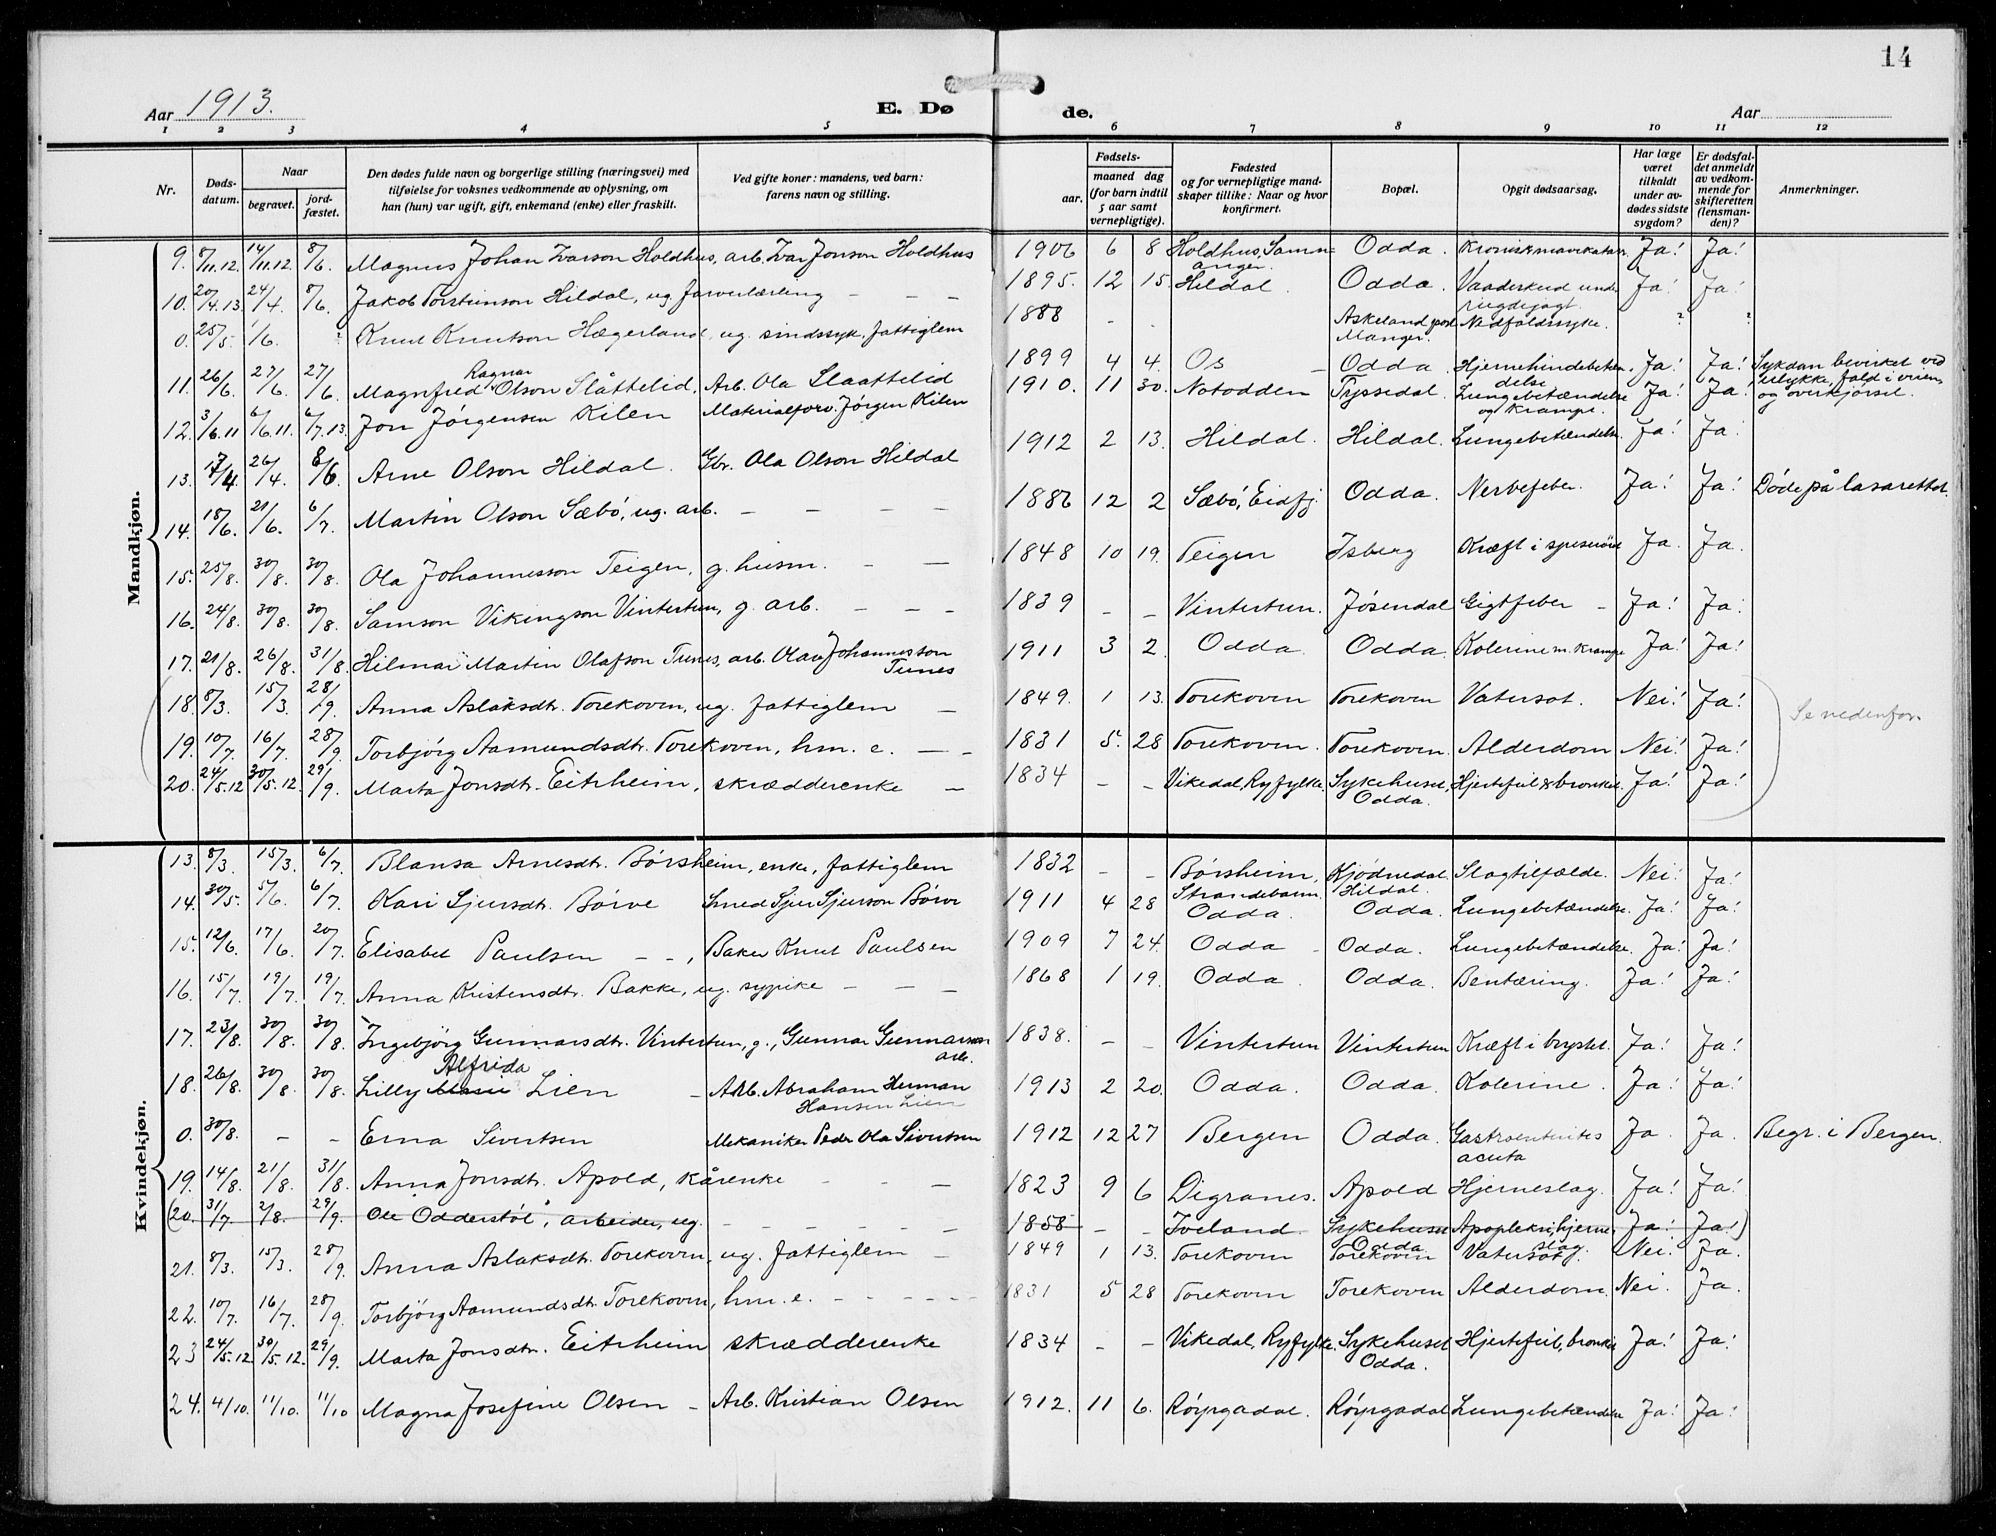 14
Aar 1913.
E. Dø de.
Aar
1 2 3 4 5 6 7 8 9 10 11 12
Nr.
Døds-datum.
Naar
begravet.
jord-fæstet.
Den dødes fulde navn og borgerlige stilling (næringsvei) med tilføielse for voksnes vedkommende av oplysning, om han (hun) var ugift, gift, enkemand (enke) eller fraskilt.
Ved gifte koner: mandens, ved barn: farens navn og stilling.
aar.
Fødsels-
maaned dag
(for barn indtil 5 aar samt vernepligtige).
Fødested og for vernepligtige mand-skaper tillike: Naar og hvor konfirmert.
Bopæl.
Opgit dødsaarsag.
Har læge været tilkaldt under av-dødes sidste sygdom?
Er dødsfal-det anmeldt av vedkom-mende for skifteretten (lensman-den)?
Anmerkninger.
Mandkjøn.
9. 8/11.12 14/11.12. 8/6. Magnus Johan Ivarson Holdhus, arb. Ivar Jonson Holdhus 1906 6 8 Holdhus, Samnanger. Odda. Kronisk mavekatarr. Ja! Ja!
10. 20/4.13 24/4. 8/6. Jakob Torsteinson Hildal, ug. farverlærling – – – 1895. 12 15. Hildal. Odda. Vaadeskud under rugdejagt. Ja! Ja!
0. 25/5. 1/6. Knut Knutson Hægerland, ug. sindssyk. fattiglem 1888 - - Askeland pr Manger. Nedfaldssyke. ? ?
11. 26/6. 27/6. 27/6. Magnfred Ragnar Olson Slåttelid, Arb. Ola Slaattelid 1899 4 4. Os – Odda. Hjernehindebetændelse Ja! Ja! Sykdom bevirket ved ulykke, fald i veien og overkjørsel.
12. 3/6.11 6/6.11. 6/7.13. Jon Jørgensen Kilen Materialforv. Jørgen Kilen 1910. 11 30. Notodden Tyssedal. Lungebetændelse og krampe. Ja! Ja!
13. 17/4 26/4. 8/6 Arne Olson Hildal. Gbr. Ola Olson Hildal 1912 2 13. Hildal. Hildal. Lungebetændelse. Ja! Ja!
14. 18/6. 21/6. 6/7. Martin Olson Sæbö, ug. arb. – – – – 1886 12 2 Sæbö, Eidfj. Odda. Nervefeber. Ja! Ja! Døde på lasarettet.
15. 25/8. 30/8. 30/8. Ola Johannesson Teigen, g. husm. – – 1848 10 19. Teigen Isberg Kræft i spiserøret Ja. Ja.
16. 24/8. 30/8. 30/8. Samson Vikingson Vintertun, g. arb. – – – 1839 – – Vintertun. Jøsendal Gigtfeber – Ja! Ja!
17. 21/8. 26/8. 31/8. Hilmar Martin Olafson Tunes, arb. Olav Johannesson Tunes 1911 3 2. Odda. Odda. Kolerine m. krampe Ja! Ja!
18. 8/3. 15/3. 28/9. Anna Aslaksdtr. Torekoven, ug. fattiglem – 1849. 1 13. Torekoven Torekoven Vatersot. Nei! Ja!
Se nedenfor.
19. 10/7. 16/7. 28/9. Torbjörg Aamundsdtr. Torekoven, hm. e. – – 1831 5. 28 Torekoven. Torekoven. Alderdom Nei! Ja!
20. 24/5.12 30/5.12. 29/9. Marta Jonsdtr. Eitrheim, skrædderenke – 1834 – – Vikedal, Ryfylke. Sykehuset, Odda. Hjertefeil & bronkit. Ja! Ja!
Kvindekjøn.
13. 8/3. 15/3. 6/7. Blansa Arnesdtr. Börsheim, enke, fattiglem 1832 – – Börsheim, Strandebarm. Kjødnedal, Hildal. Slagtilfælde. Nei! Ja!
14. 30/5. 5/6. 6/7. Kari Sjursdtr. Börve Smed Sjur Sjurson Börve 1911 4 28 Odda. Odda. Lungebetændelse. Ja! Ja!
15. 12/6. 17/6. 20/7. Elisabet Paulsen – –, Baker Knut Paulsen 1909 7 24. Odda – Odda. Lungebetændelse. Ja! Ja!
16. 15/7. 19/7. 19/7. Anna Kristensdtr. Bakke, ug. sypike – – – 1868 1 19. Odda Odda. Bentæring. Ja! Ja!
17. 23/8. 30/8. 30/8. Ingebjörg Gunnarsdtr. Vintertun, g., Gunnar Gunnarson arb. 1838. – – Vintertun Vintertun Kræft i brystet. Ja! Ja!
18. 26/8. 30/8. 30/8. Lilly Alfrida Lien – Arb. Abraham Herman Hansen Lien 1913 2 20. Odda. Odda. Kolerine. Ja! Ja!
0. 30/8. – – Erna Sivertsen Mekaniker Peder Ola Sivertsen 1912 12 27 Bergen Odda. Gastroenterites acuta Ja. Ja. Begr. i Bergen.
19. 14/8. 21/8. 31/8. Anna Jonsdtr. Apold, kårenke – – – 1823 9 6 Digranes. Apold Hjerneslag. Ja! Ja!
(20. 31/7. 2/8. 29/9. Ole Odderstöl, arbeider, ug. – – – – – 1858 – – Iveland. Sykehuset Odda Apopleksi, hjerneslag. Ja! Ja!)
21. 8/3. 15/3. 28/9. Anna Aslaksdtr. Torekoven, ug. fattiglem – 1849 1 13. Torekoven Torekoven Vatersot. Nei! Ja.
22. 10/7. 16/7. 28/9. Torbjörg Aamundsdtr. Torekoven, hm. e. – – – – – 1831 5 28 Torekoven Torekoven Alderdom. Nei. Ja.
23 24/5.12 30/5.12. 29/9. Marta Jonsdtr. Eitrheim skrædderenke 1834 – – Vikedal, Ryfylke. Sykehuset Odda. Hjertefeil, bronkit Ja! Ja!
24. 4/10. 11/10. 11/10 Magna Josefine Olsen – Arb. Kristian Olsen 1912. 11 6. Röyrgadal. Röyrgadal Lungebetændelse Ja! Ja!